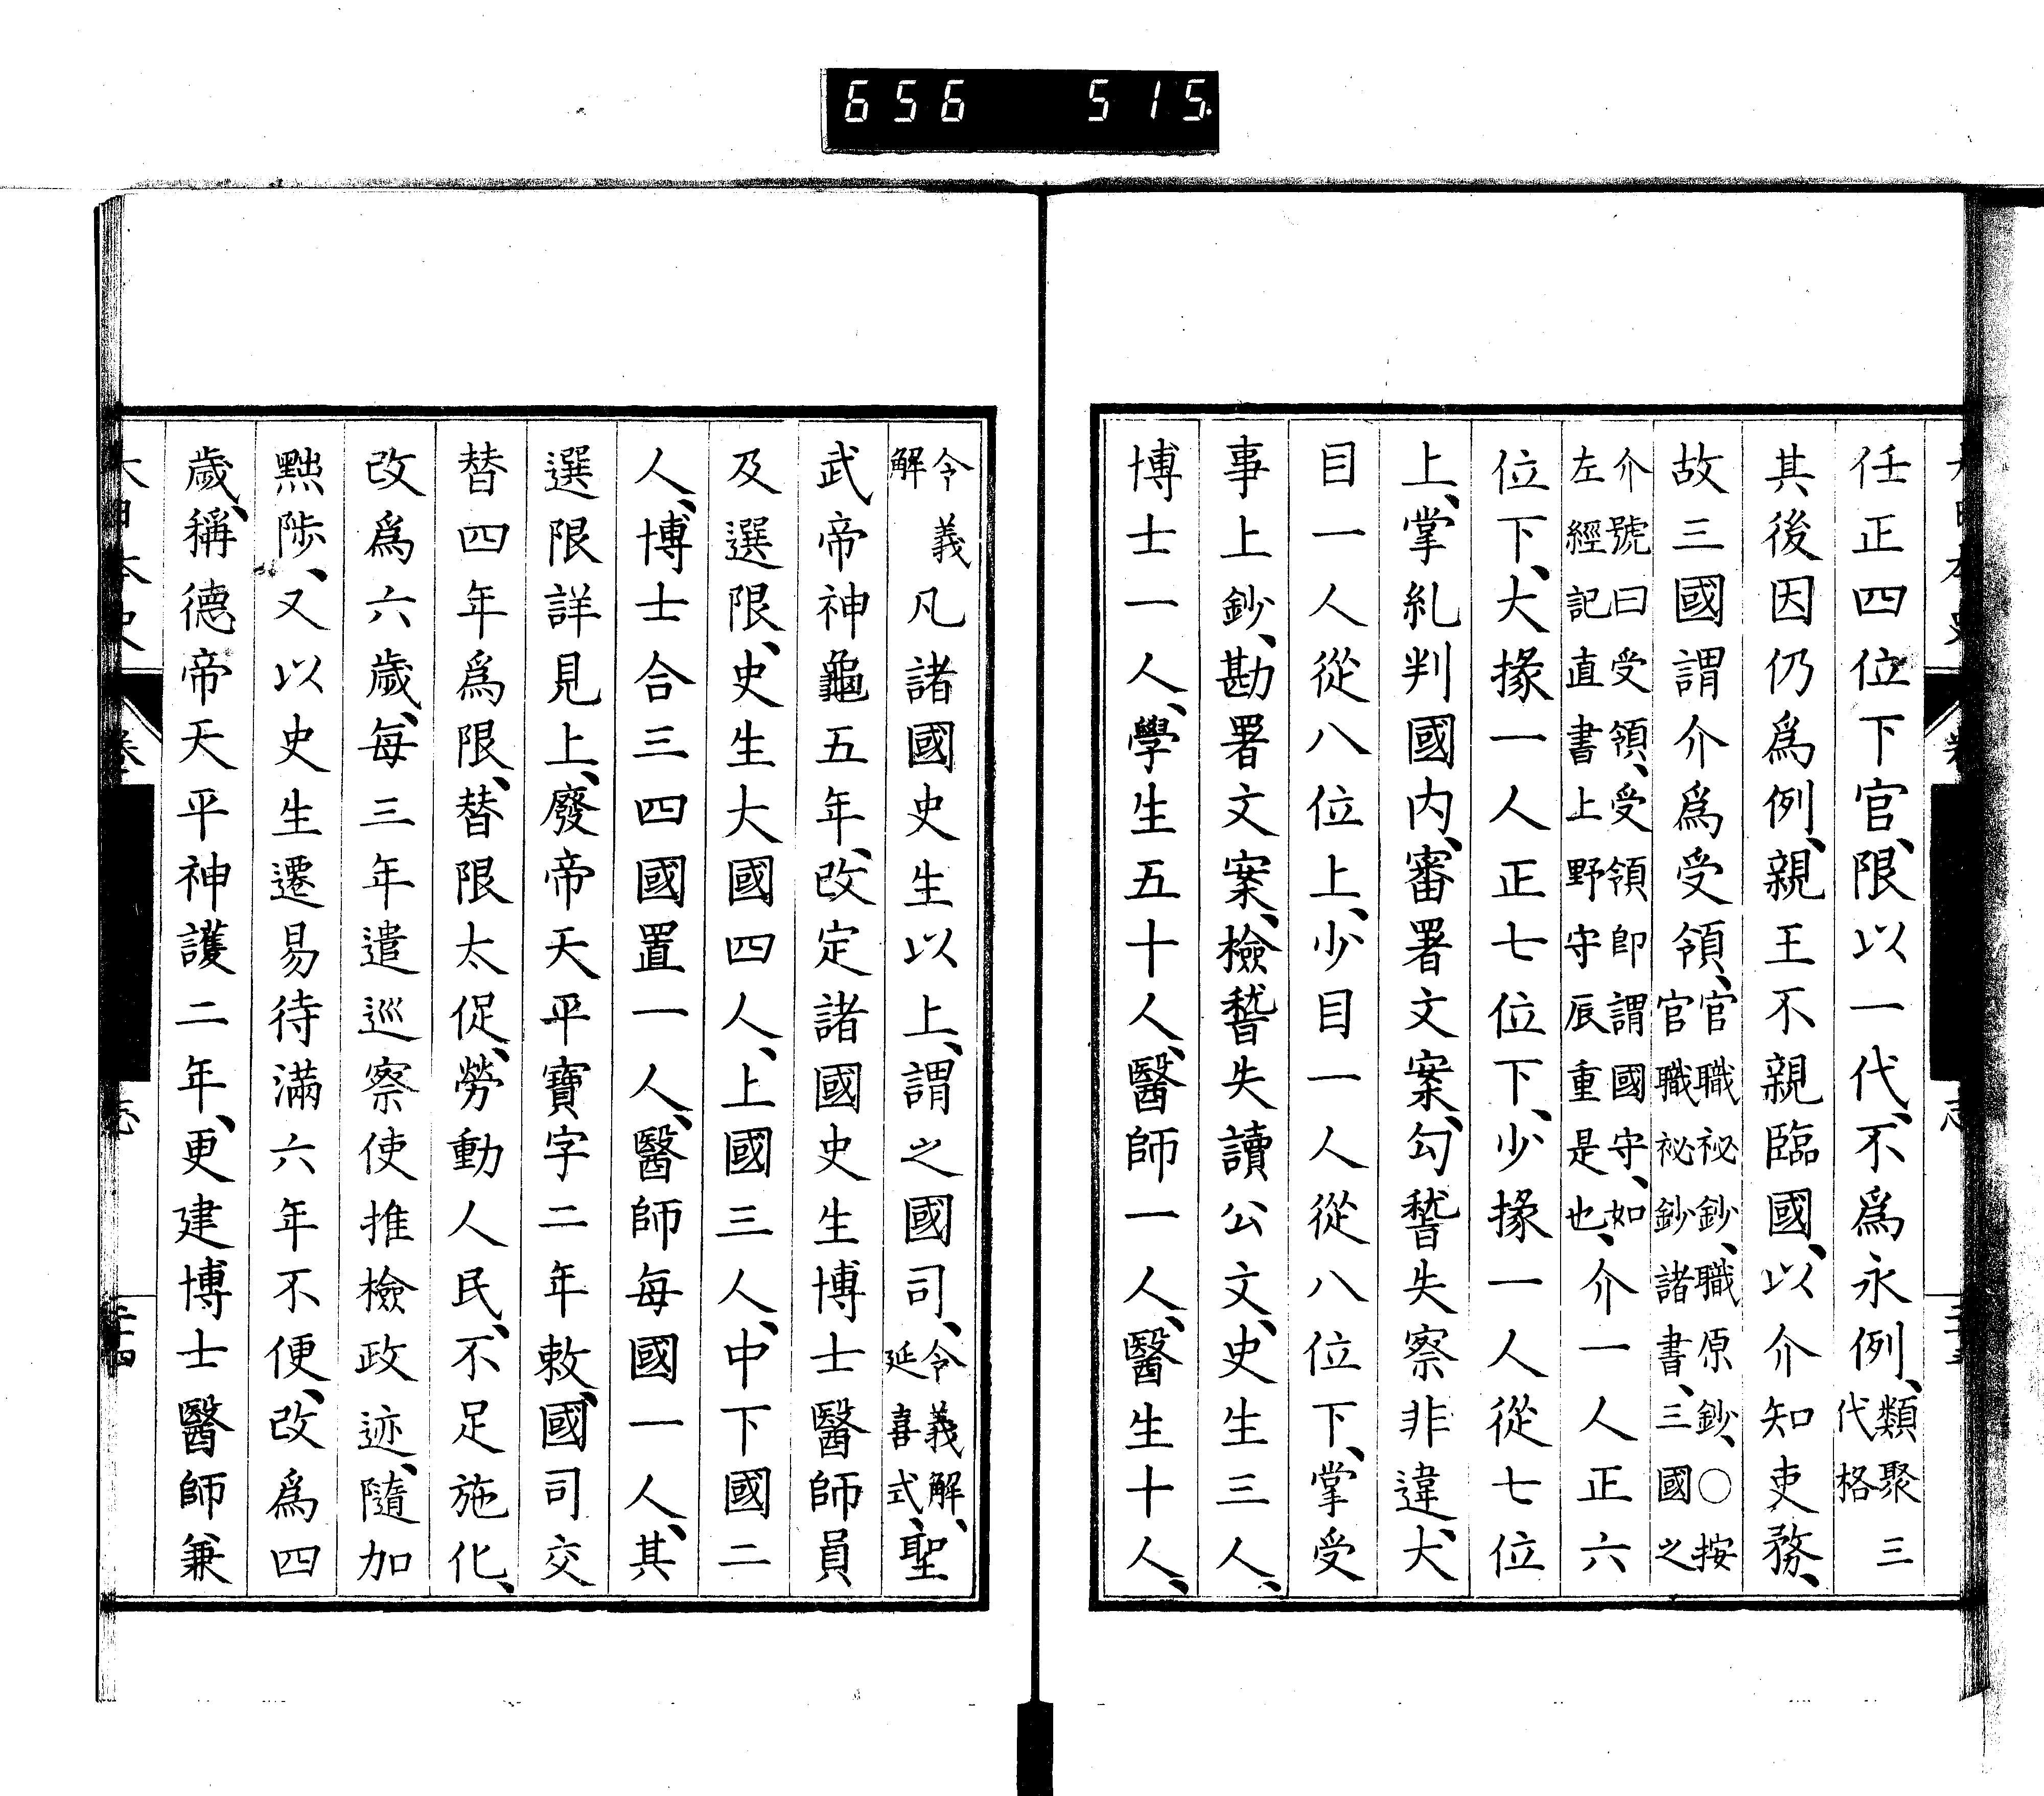 656 515
任正四位下官、限以一代、不爲永例、類聚三代格
其後因仍爲例、親王不親臨國、以介知吏務、
故三國謂介爲受領、官職祕鈔、職原鈔、○按官職祕鈔諸書、三國之
介號曰受領、受領卽謂國守、如左經記直書上野守辰重是也、介一人正六
位下、大掾一人正七位下、少掾一人從七位
上、掌糺判國内、審署文案、勾稽失察非違、大
目一人從八位上、少目一人從八位下、掌受
事上鈔、勘署文案、檢稽失讀公文、史生三人、
博士一人、學生五十人、醫師一人、醫生十人、
令義解凡諸國史生以上、謂之國司、令義解、延喜式、聖
武帝神龜五年、改定諸國史生博士醫師員
及選限、史生大國四人、上國三人、中下國二
人、博士合三四國置一人、醫師每國一人、其
選限詳見上、廢帝天平寶字二年敕、國司交
替四年爲限、替限太促、勞動人民、不足施化、
改爲六歲、每三年遣巡察使推檢政迹、隨加
黜陟、又以史生遷易待滿六年不便、改爲四
歲、稱德帝天平神護二年、更建博士醫師兼
大日本史 卷 志 二十四